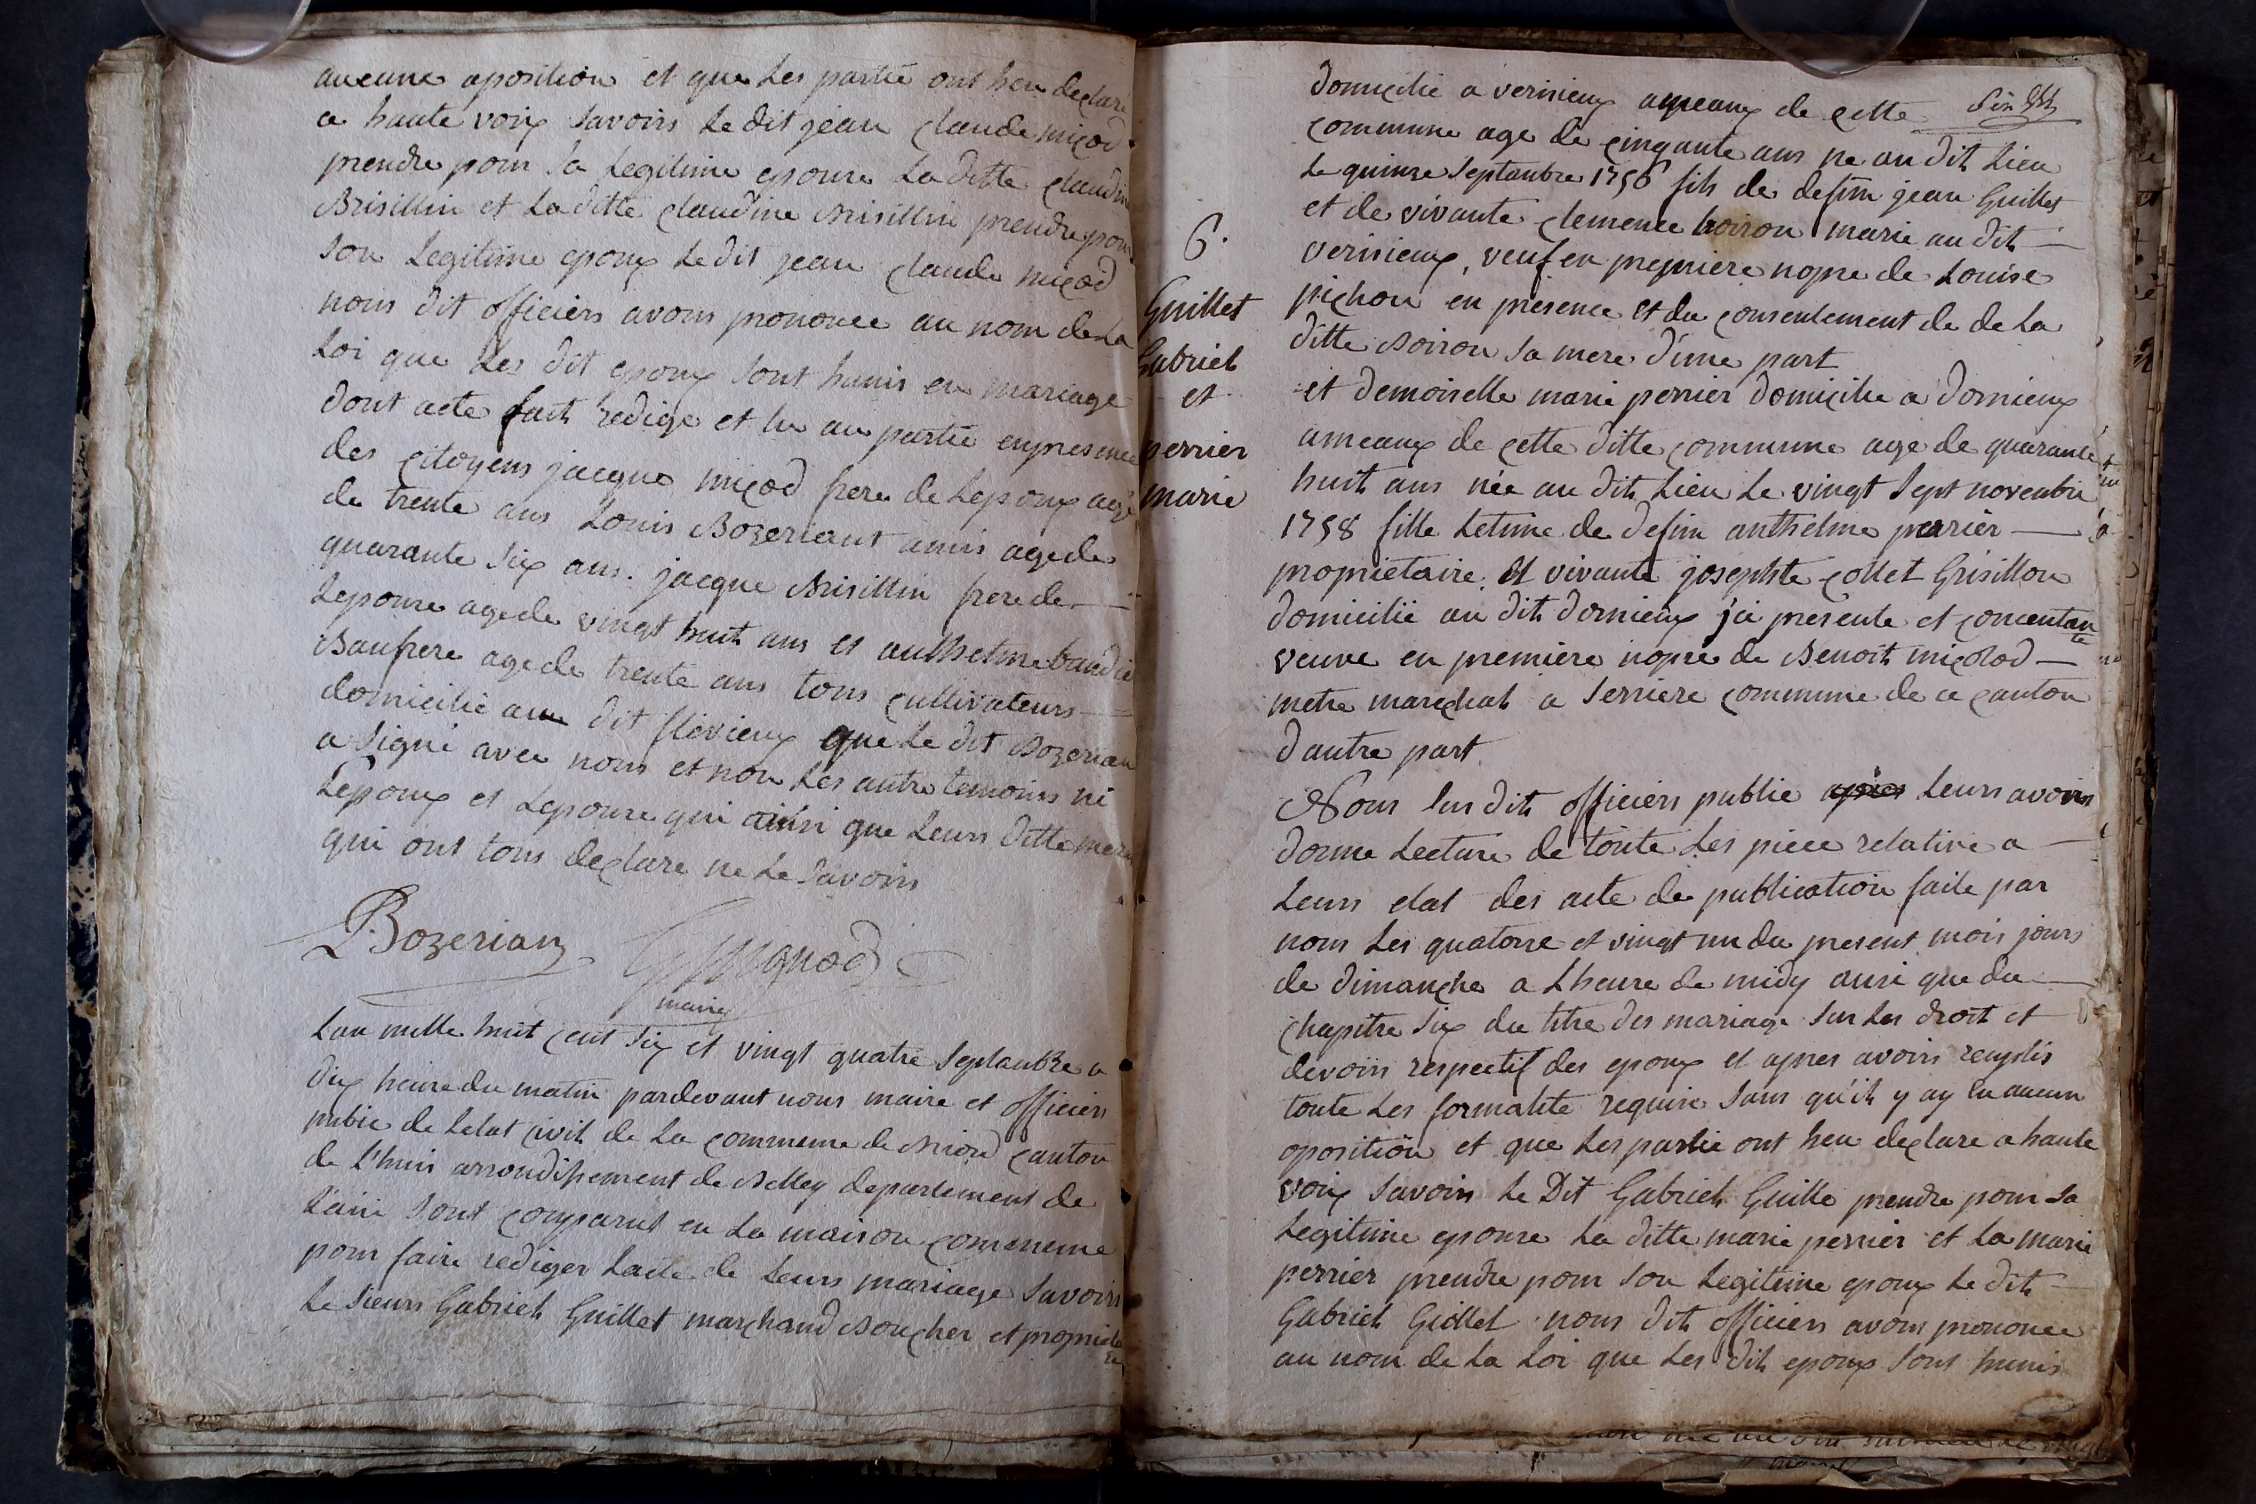 aucune aposition et que les partie ont heu declaré
a haute voix savoirs le dit jean claude miçod
prendre pour sa Legitime epouse La ditte claudin
Brisillin et la ditte claudine Brisillin prendre pour
son Legitime epoux le dit jean claude miçod
nous dit officiers avons prononce au nom de La
Loi que Les dit epoux sont hunis en mariage
dont acte fait redige et lu au partie enpresence
des çitoyens jacque miçod frere de Lepoux agé
de trente ans Louis Bozeriant amis agede
quarante six ans. jacque Brisillin frere de
Lepouse agede vingt huit ans et anthelme baudi
Baufrere agede trente ans tous cultivateurs
domicilie au dit flévieux que le dit Bozerian
a signé avec nous et non Les autre temoins ni
Lepoux et Lepouse qui ainsi que Leurs ditte mere
qui ont tous declare ne le savoirs
Bozerian
maire
Lan mille huit cent six et vingt quatre Septanbre a
dix heure du matin pardevant nous maire et officiers
pubic de Letat çivil de La commune de Briord canton
de L'huis arrondissement de Belley departement de
L'ain sont comparut en La maison commeune
pour faire rediger Lacte de Leurs mariage Savoirs
Le sieurs Gabriel Guillet marchand Boucher et propriete
6.
Guillet
Gabriel
et
perrier
marie
domicilie a verisieux ameaux de cette
commune age de cinqante ans ne au dit Lieu
Le quinse Septanbre 1756 fils de defun jean Guillet
et de vivante clemence boiron marie au dit
verisieux, veuf en premiere nopse de Louise
pichon en presence et du consentement de de La
ditte Boiron sa mere d'une part
et demoiselle marie perrier domicilie a dornieux
ameaux de cette ditte commune age de quarante
huit ans née au dit Lieu Le vingt sept novenbre
1758 fille Letime de defun anthelme perrier
proprietaire et vivante josephte collet Grisillon
domicilié au dit dornieux ici presente et concentante
veuve en premiere nopse de Benoit micolod
metre marechal a serriere commune de ce canton
dautre part
Nous sus dit officiers public apres Leurs avoirs
donne Lecture de toute Les piece relative a
Leurs etat des acte de publication faite par
nous Les quatorse et vingt un du present mois jours
de dimanche a Lheure de midy ausi que du
chapitre six du titre des mariage sur Les droit et
devoirs respectif des epoux et apres avoirs remplis
toute Les formalité requise sans qu'il y ay eu aucun
oposition et que Les partie ont heu declare a haute
voix savoirs Le Dit Gabriel Guille prendre pour sa
Legitime epouse La ditte marie perrier et La marie
perrier prendre pour son Legitime epoux Le dit
Gabriel Giollet nous dit officiers avons prononce
au nom de La Loi que Les dit epoux sont hunis